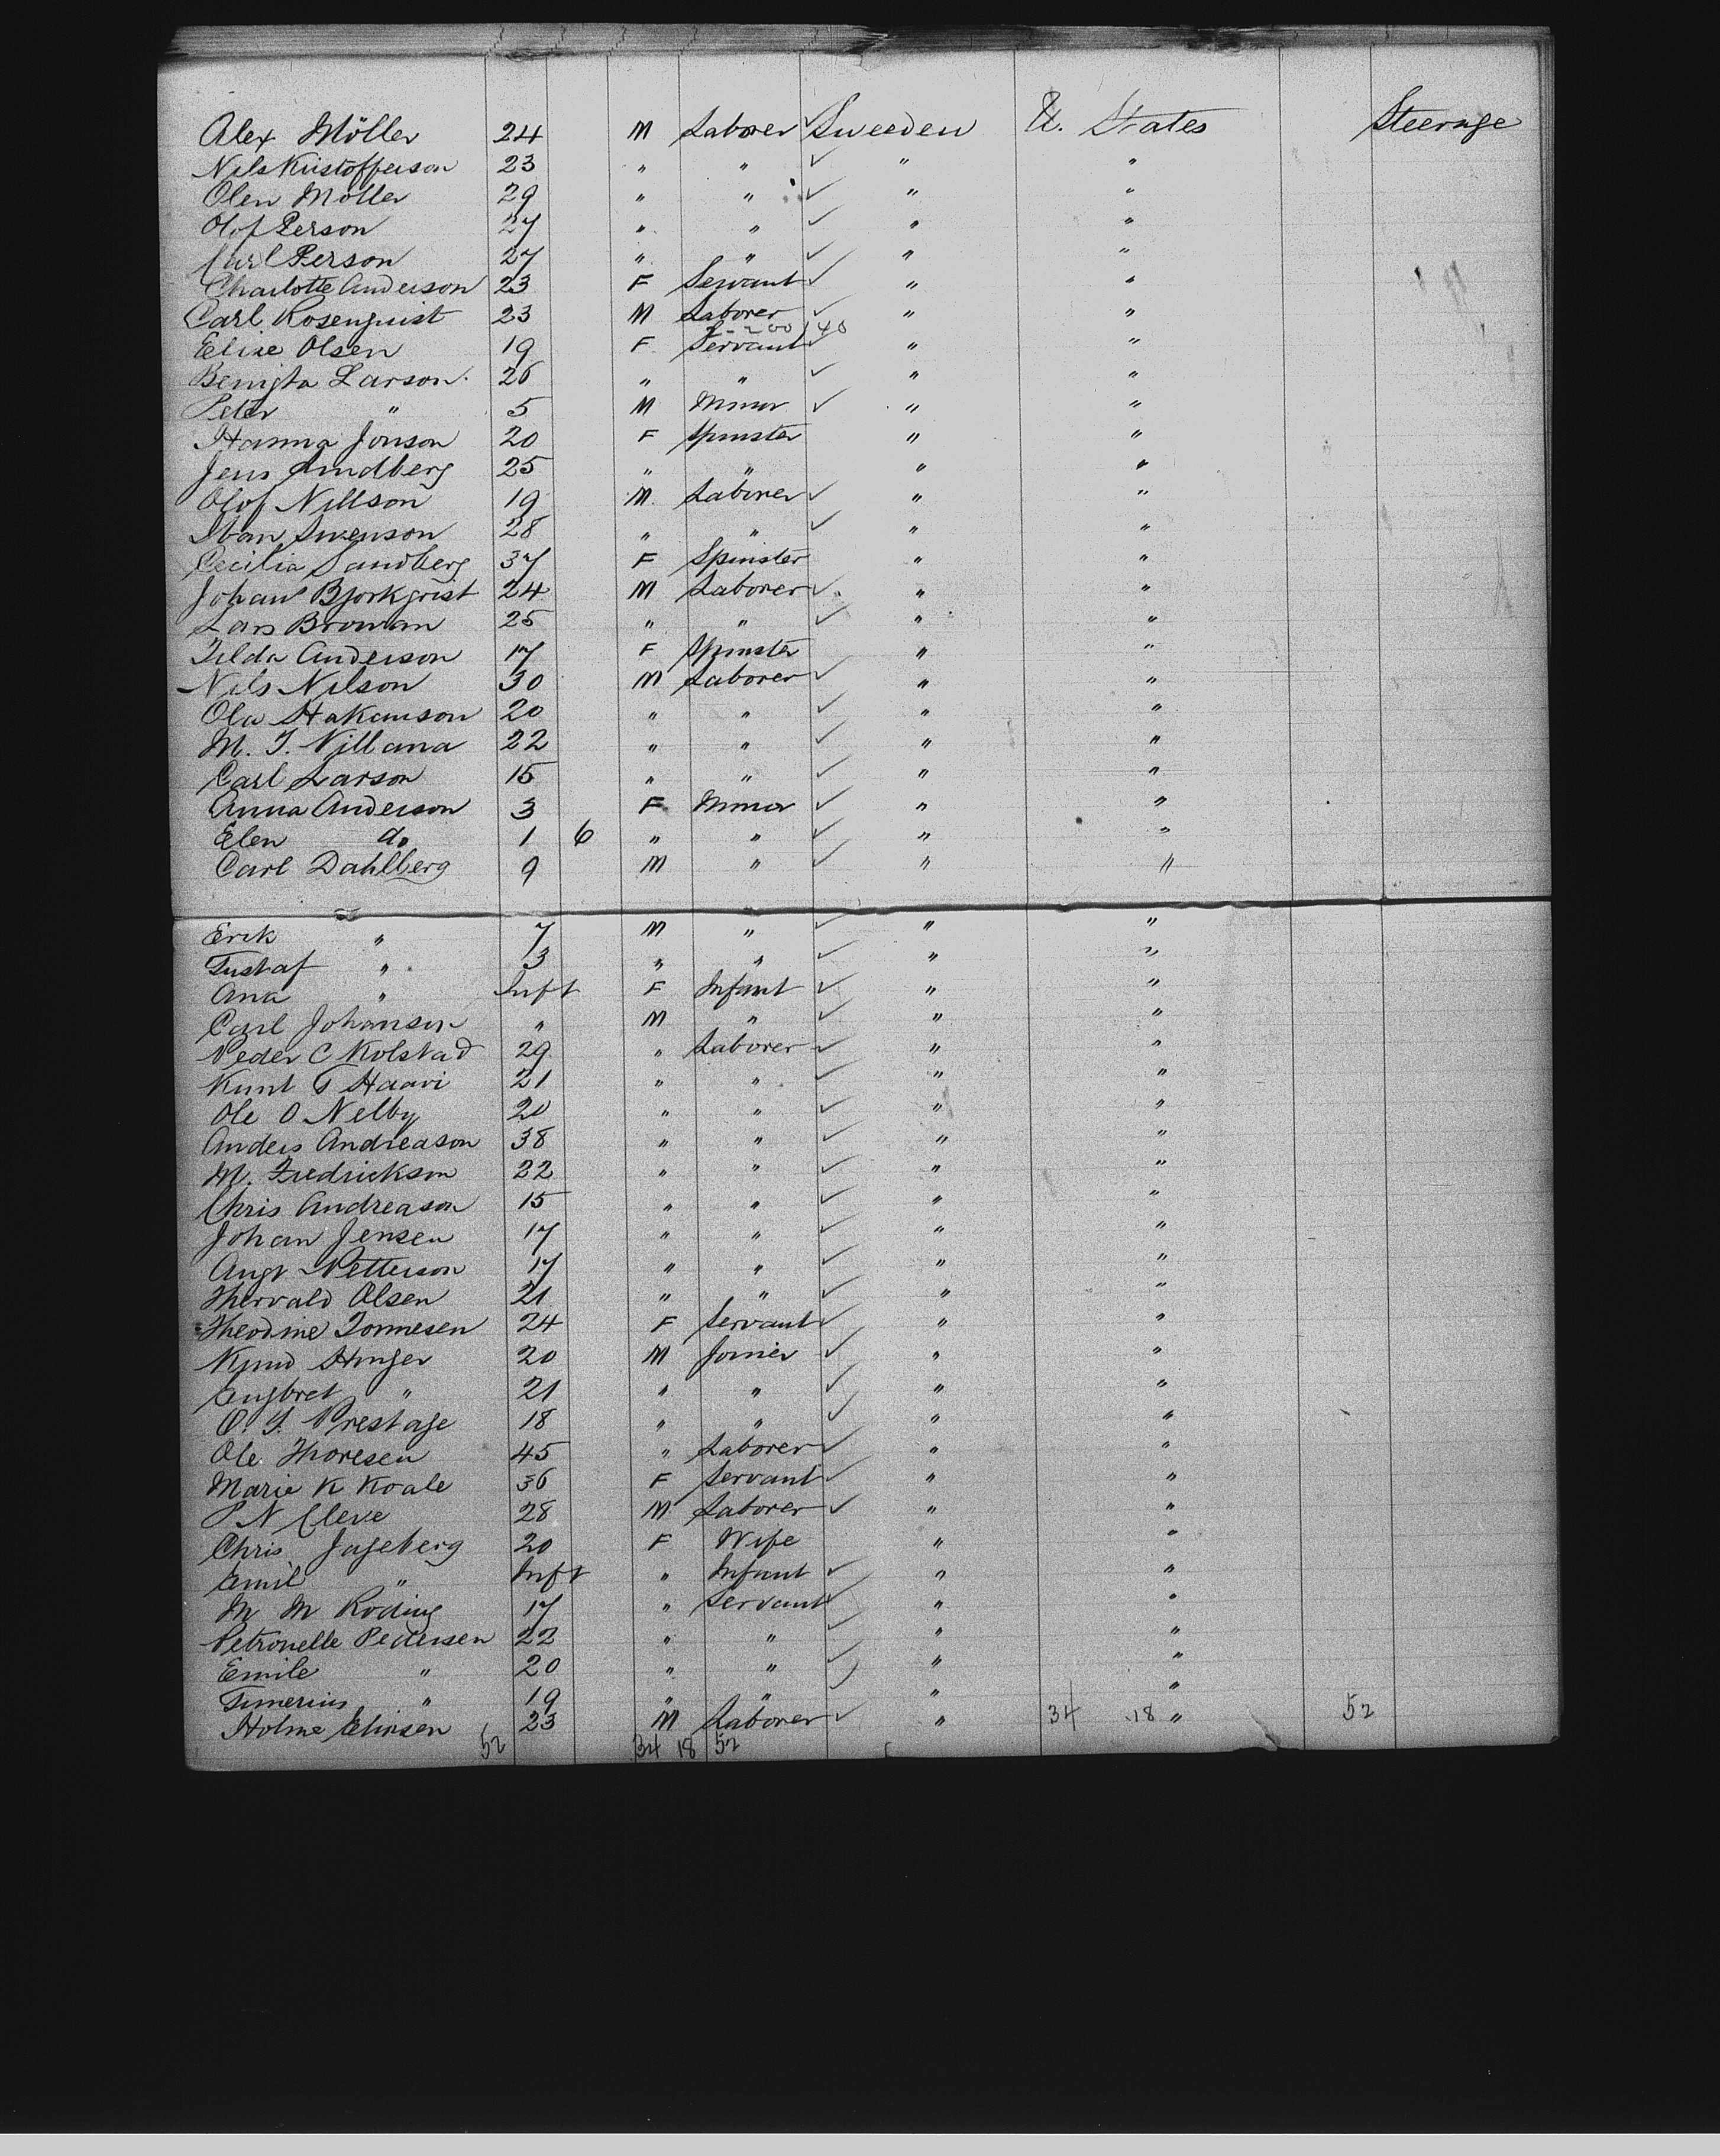 Alex Möller 24 M Laborer ✓ Sweeden U. States Steerage
Nils Kristofferson 23 " " ✓ " "
Olen Möller 29 " " ✓ " "
Olof Person 27 " " ✓ " "
Carl Person 27 " " ✓ " "
Charlotte Anderson 23 F Servant ✓ " "
Carl Rosenquist 23 M Laborer ✓ " "
Elise Olsen 19 F Servant ✓ " "
Bengta Larson 26 " " ✓ " "
Peter " 5 M Minor ✓ " "
Hanna Jonson 20 F Spinster " "
Jens Lindberg 25 " " " "
Olof Nillson 19 M Laborer ✓ " "
Swenson 28 " " ✓ " "
Cecilia Sandberg 37 F Spinster " "
Johan Bjorkqrist 24 M Laborer ✓ " "
Lars Broman 25 " " ✓ " "
Tilda Anderson 17 F Spinster " "
Nils Nilson 30 M Laborer ✓ " "
Ola Hakanson 20 " " ✓ " "
M. J. Nillana 22 " " ✓ " "
Carl Larson 15 " " ✓ " "
Anna Anderson 3 F Minor ✓ " "
Elen do 1 6 " " ✓ " "
Carl Dahlberg 9 M " ✓ " "
Erik " 7 M " ✓ " "
Gustaf " 3 " " ✓ " "
Ana " Inft F Infant ✓ " "
Carl Johanson " M " ✓ " "
Peder C Kolstad 29 " Laborer ✓ " "
Knut T Haavi 21 " " ✓ " "
Ole O Nelby 20 " " ✓ " "
Anders Andreason 38 " " ✓ " "
M. Fredrickson 22 " " ✓ " "
Chris Andreason 15 " " ✓ " "
Johan Jensen 17 " " ✓ " "
Augt Petterson 17 " " ✓ " "
Thorvald Olsen 21 " " ✓ " "
Theodine Tonnesen 24 F Servant ✓ " "
20 M Joiner ✓ " "
Engbret " 21 " " ✓ " "
Prestage 18 " " ✓ " "
Ole Thoresen 45 " Laborer ✓ " "
Marie K Koale 36 F Servant ✓ " "
P N Cleve 28 M Laborer ✓ " "
Chris Jageberg 20 F Wife " "
Emil " Inft " Infant ✓ " "
M M Roding 17 " Servant ✓ " "
Petronelle Pedersen 22 " " ✓ " "
Emile " 20 " " ✓ " "
" 19 " " ✓ " "
Holme 23 M Laborer ✓ " 34 18 " 52
52 34 18 52